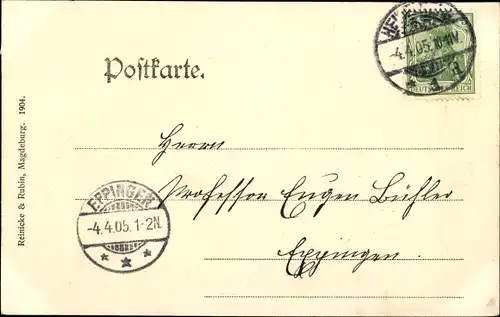 -4.4.05.
DEUTSCHES REICH
Postkarte.
Herrn
Professor Eugen Bühler
Eppingen.
EPPINGEN
-4.4.05.1-2N.
* * *
Reinicke & Rubin, Magdeburg. 1904.